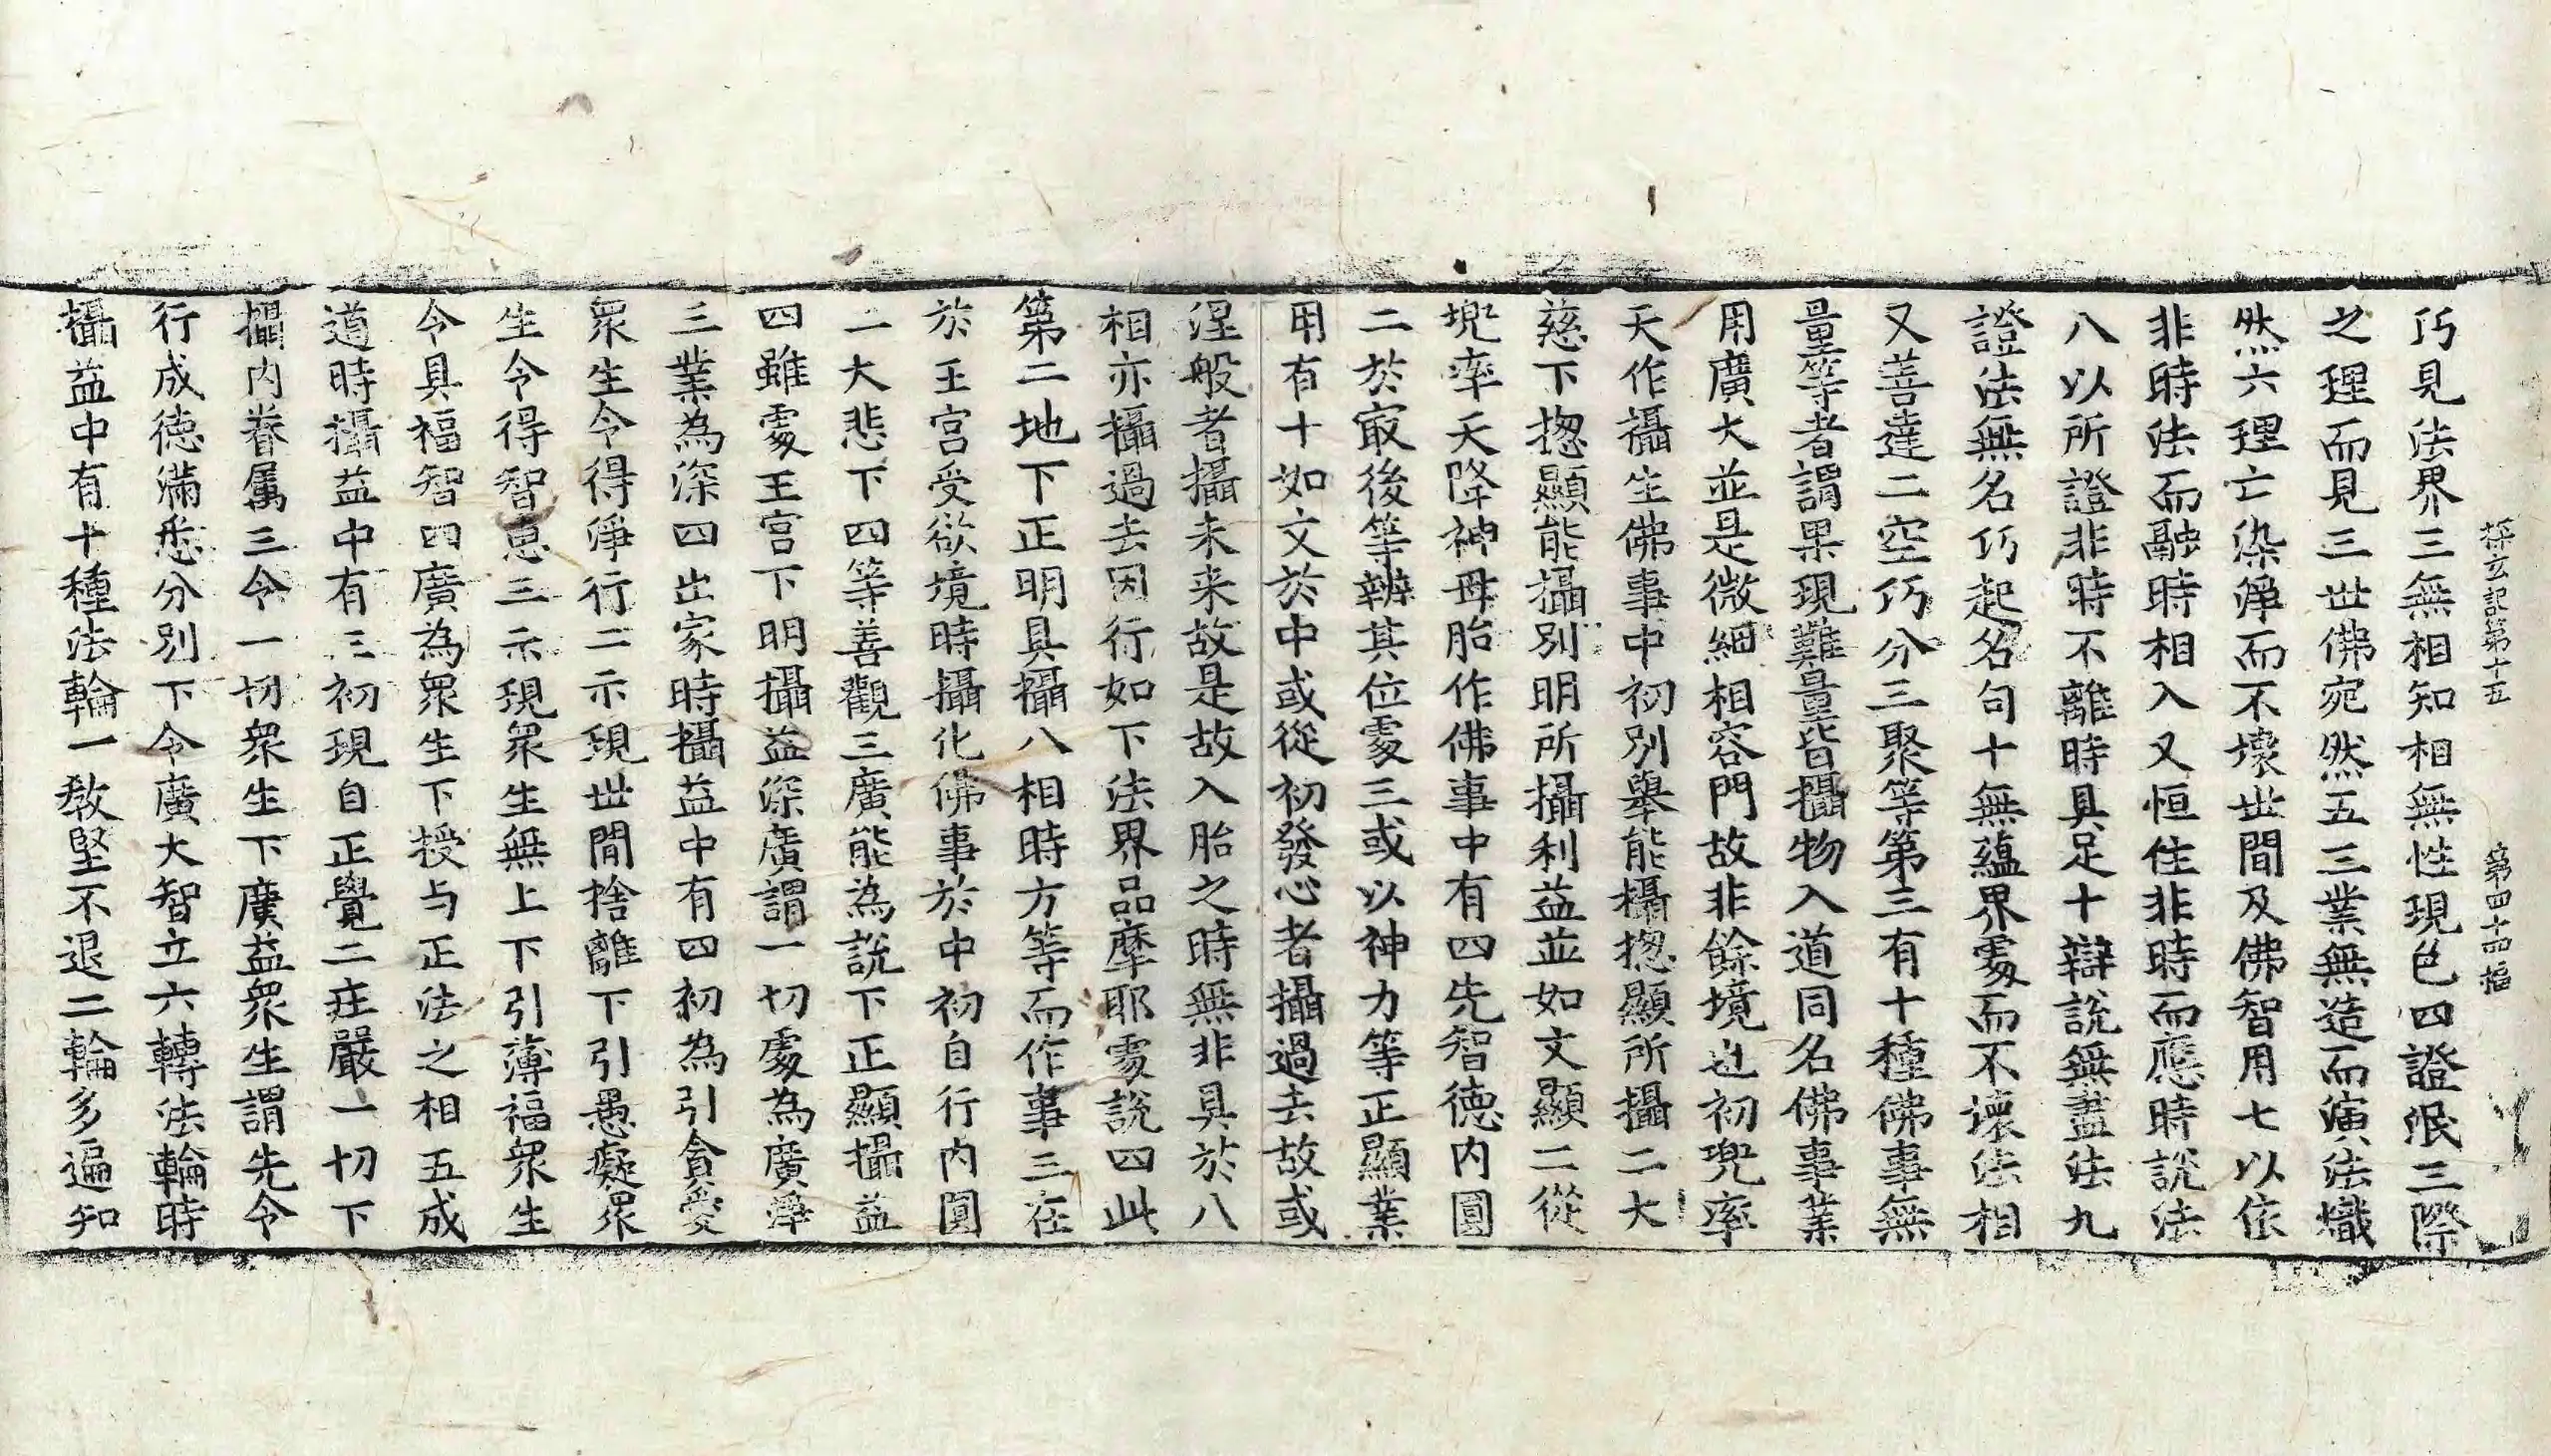 探玄記第十五　第四十四幅
巧見法界三無相知相無性現色四證泯三際
之理而見三世佛宛然五三業無造而演法熾
然六理亡染淨而不壞世間及佛智用七以依
非時法而融時相入又恒住非時而應時說法
八以所證非時不離時具足十辯說無盡法九
證法無名巧起名句十無蘊界處而不壞法相
又善達二空巧分三聚等第三有十種佛事無
量等者謂果現難量皆攝物入道同名佛事業
用廣大並是微細相容門故非餘境也初兜率
天作攝生佛事中初別舉能攝揔顯所攝二大
慈下揔顯能攝別明所攝利益並如文顯二從
兜率天降神母胎作佛事中有四先智德內圓
二於寂後等辨其位處三或以神力等正顯業
用有十如文於中或從初發心者攝過去故或
涅般者攝未来故是故入胎之時無非具於八
相亦攝過去因行如下法界品摩耶處說四此
第二地下正明具攝八相時方等而作事三在
於王宮受欲境時攝化佛事於中初自行內圓
一大悲下四等善觀三廣能為說下正顯攝益
四雖處王宮下明攝益深廣謂一切處為廣淨
三業為深四出家時攝益中有四初為引貪愛
衆生令得淨行二示現世間捨離下引愚癡衆
生令得智恵三示現衆生無上下引薄福衆生
令具福智四廣為衆生下授与正法之相五成
道時攝益中有三初現自正覺二莊嚴一切下
攝內眷屬三令一切衆生下廣益衆生謂先令
行成德滿悉分別下令廣大智立六轉法輪時
攝益中有十種法輪一教堅不退二輪多遍知